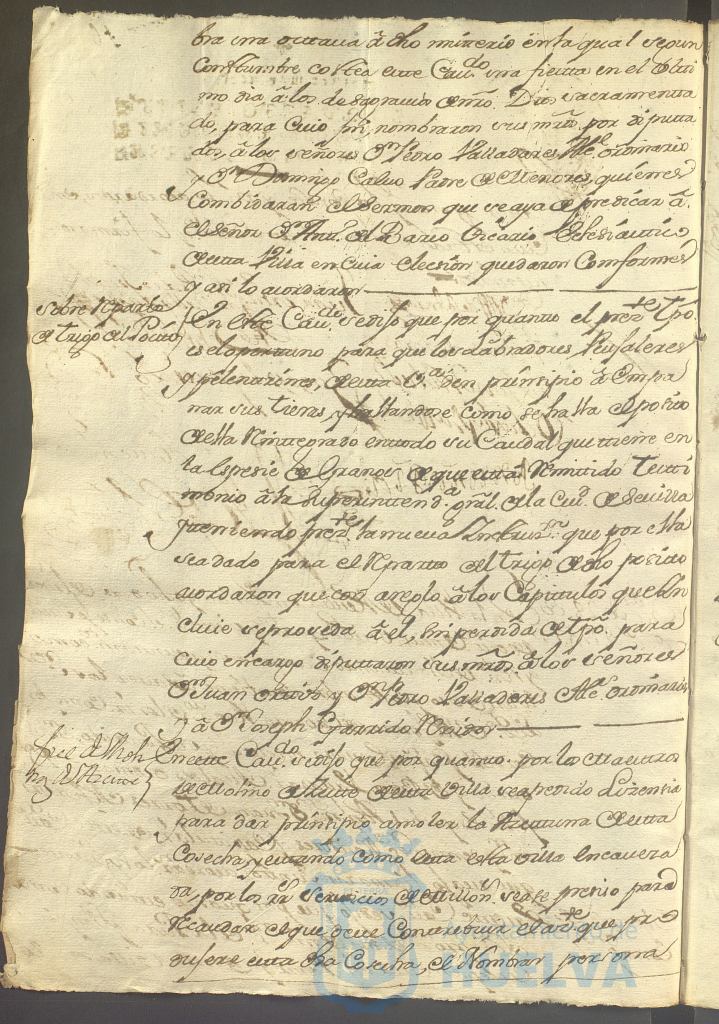 bra una octava á dho misterio en la qual segun
Constumbre costea este Cavdo. una fiesta en el Ulti
mo dia, á los desagravios de nro. Dios sacramenta
do, para cuio fin nombraron sus mrds. por diputa
dos, á los señores Dn. Pedro Valladares Alce. ordinario
y Dn. Domingo Calvo Padre de Menores, quienes
Combidaran el Sermon que se aya de predicar á
el señor Dn. Antto. del Bario Vicario Eclesiástico
de esta Villa en cuia elecsion quedaron Comformes
y asi lo acordaron
sobre Reparto
de trigo del Pocito
En este Cavdo. se dijo que por quanto el preste. tpo.
es el oportuno para que los Labradores, Peujaleres
y pelentrines, de esta Va. den prinsipio á Empa
nar sus tieras, y hallandose como se halla el posito
de ella Reintegrado en todo su Caudal que tiene en
la Espesie de Granos de que está Remitido Testi
monio á la Superintenda. gral. de la Ciud. de Sevilla
y teniendo preste. la nueva Instruszn. que por ella
sea dado para el Reparto del trigo de dho posito
acordaron que con areglo á los Capitulos que En
cluie se proveda á el, sin perdida de tpo. para
cuio encargo diputtaron sus mrds. á los señores
Dn. Juan ortiz y Dn. Pedro Valladares Alce. ordinarios
y á Dn. Joseph Garrido Rexidor
En este Cavdo. se dijo que por quanto por los
de Molino de Aseite de esta Villa sea pedido Lizensia
para dar prinsipio a moler la Azeituna de esta
Cosecha, y estando como esta esta villa encaveza
da, por los rs. servicios de Millons. sea se presiso para
Recaudar el que deve Contribuir el aste. que pro
dusere esta dha Cosecha, el Nombrar persona
HUELVA